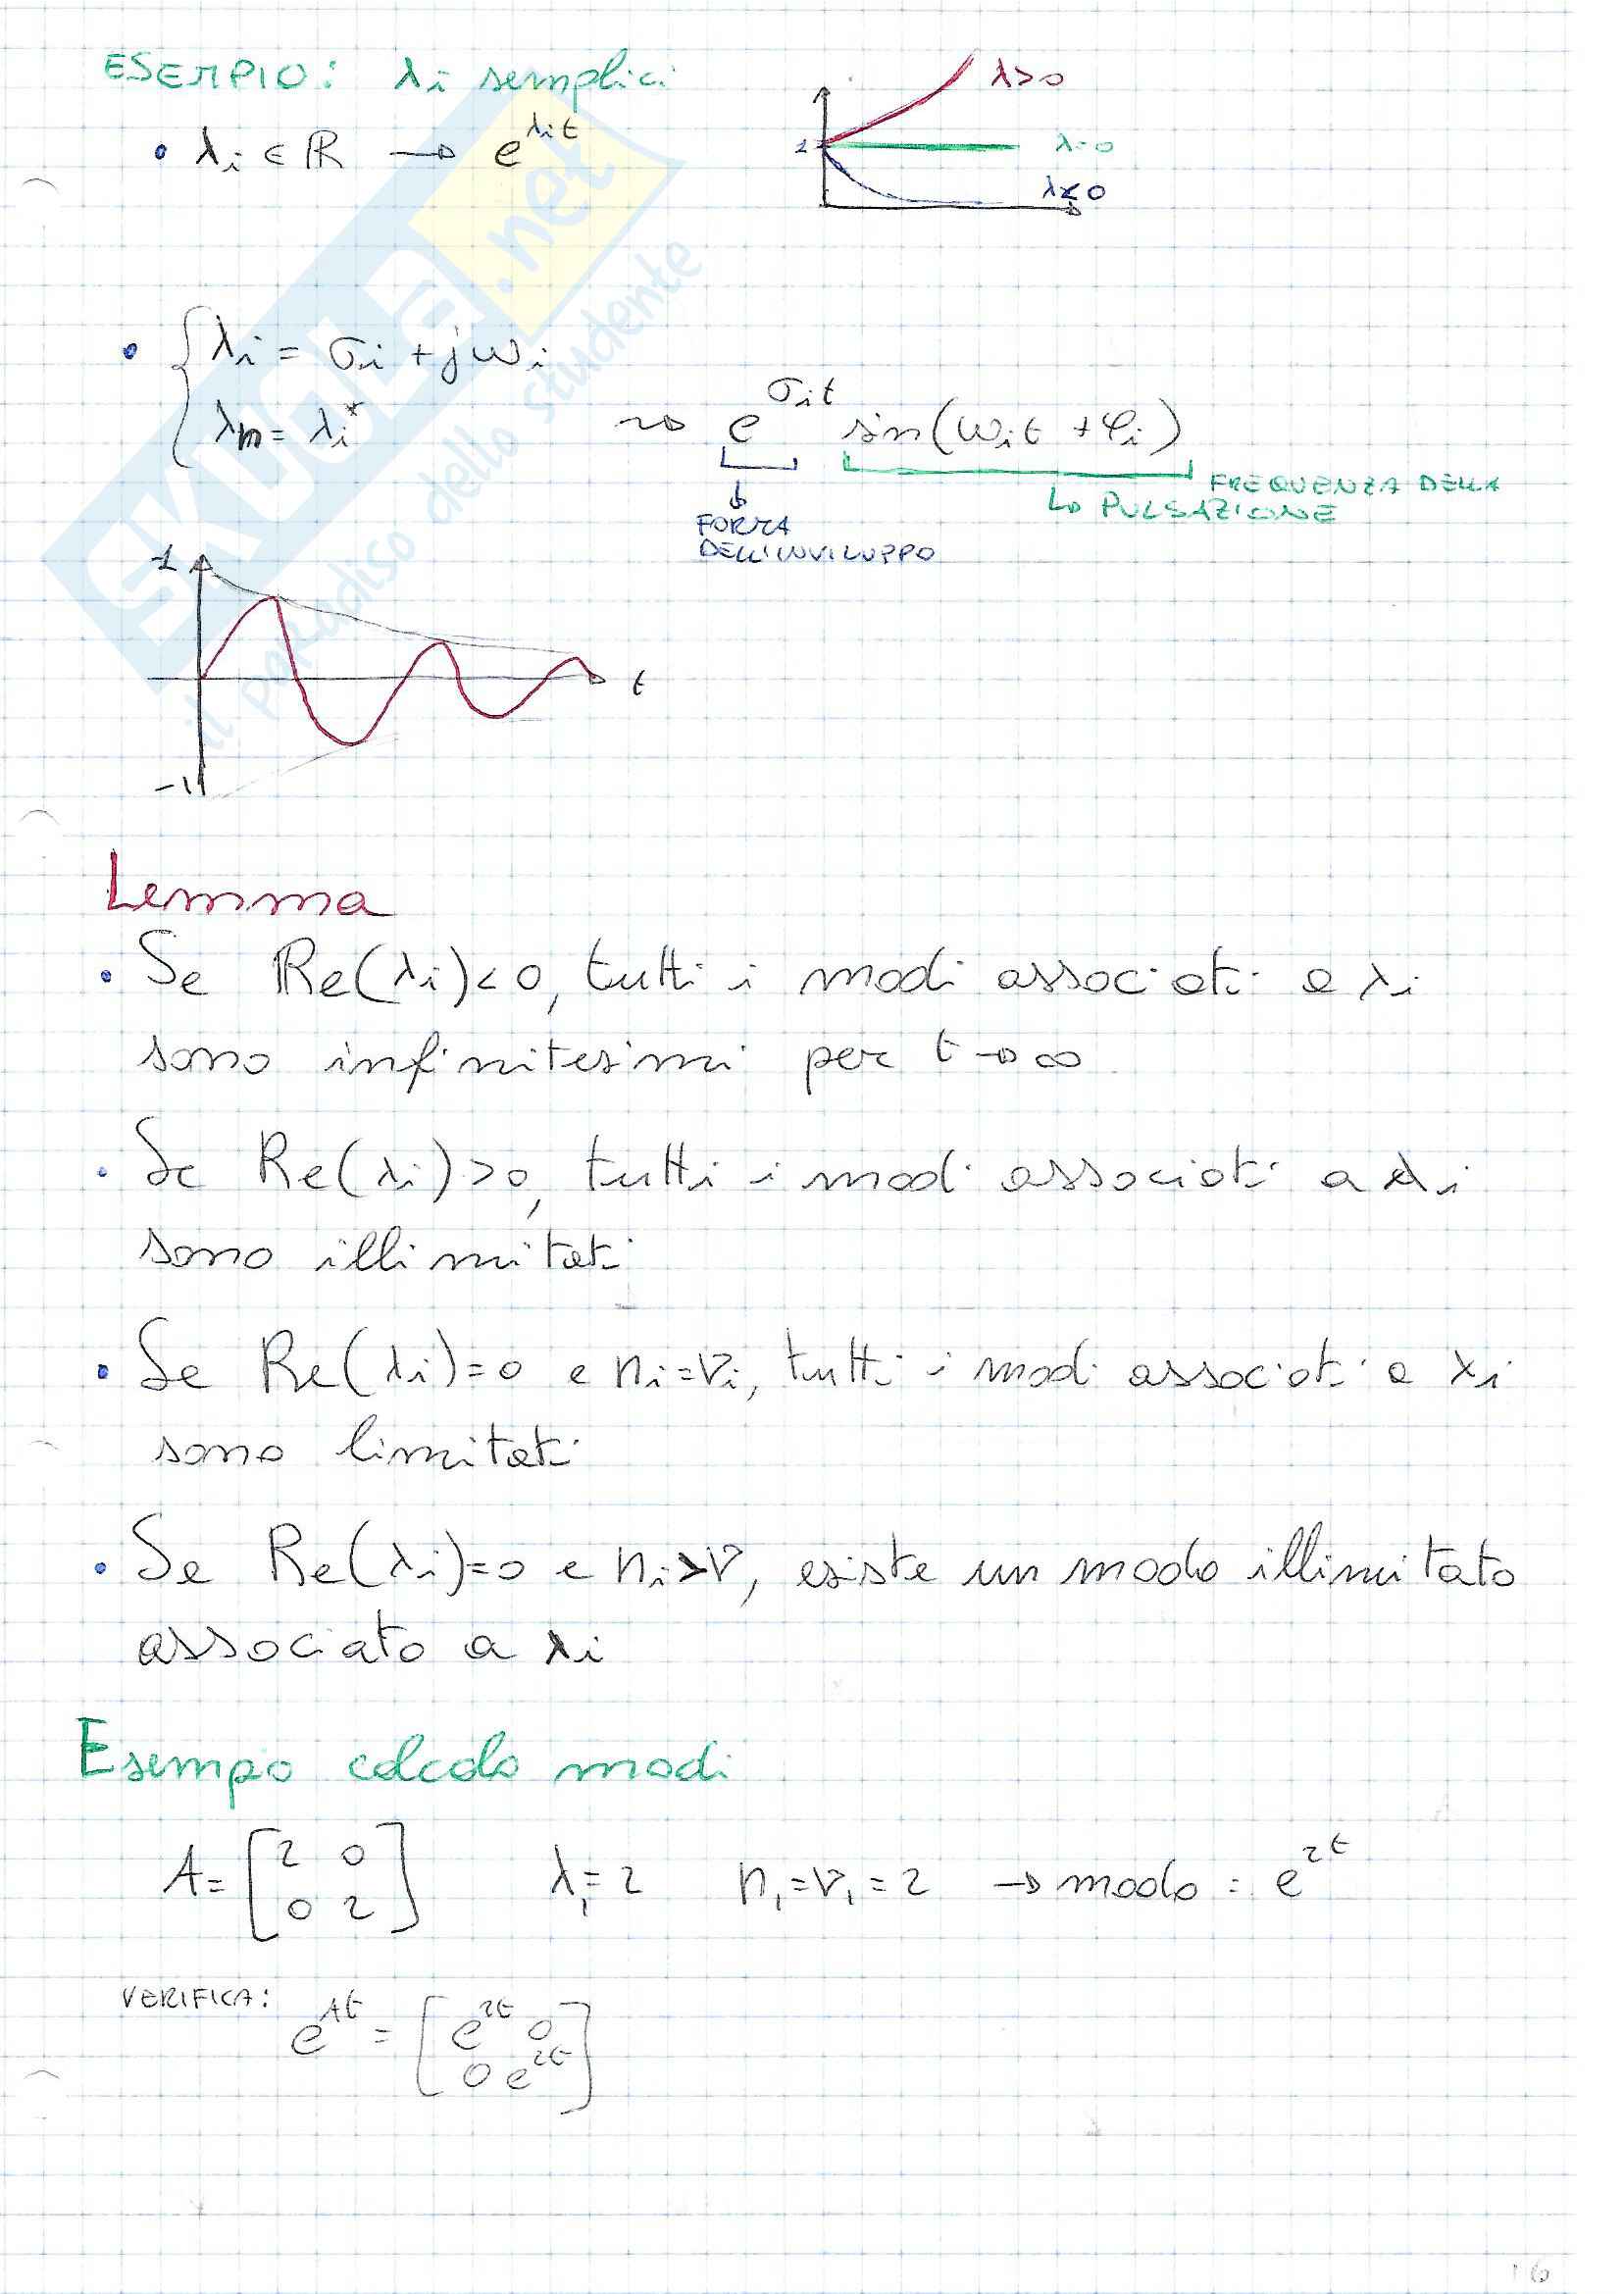 ESEMPIO: λi semplici
• λi ∈ ℝ → e^{λit}
λ>0
1
λ=0
λ<0
• { λi = σi + jωi
λm = λi*
⇝ e^{σit} sin(ωit + φi)
FREQUENZA DELLA
↳ PULSAZIONE
FORMA
DELL'INVILUPPO
1
t
-1
Lemma
• Se Re(λi)<0, tutti i modi associati a λi
sono infinitesimi per t→∞
• Se Re(λi)>0, tutti i modi associati a λi
sono illimitati
• Se Re(λi)=0 e ni=νi, tutti i modi associati a λi
sono limitati
• Se Re(λi)=0 e ni>ν, esiste un modo illimitato
associato a λi
Esempo calcolo modi
A = [2 0
0 2] λ1=2 n1=ν1=2 → modo: e^{2t}
VERIFICA:
e^{At} = [e^{2t} 0
0 e^{2t}]
SKUOLA.net
il paradiso dello studente
16